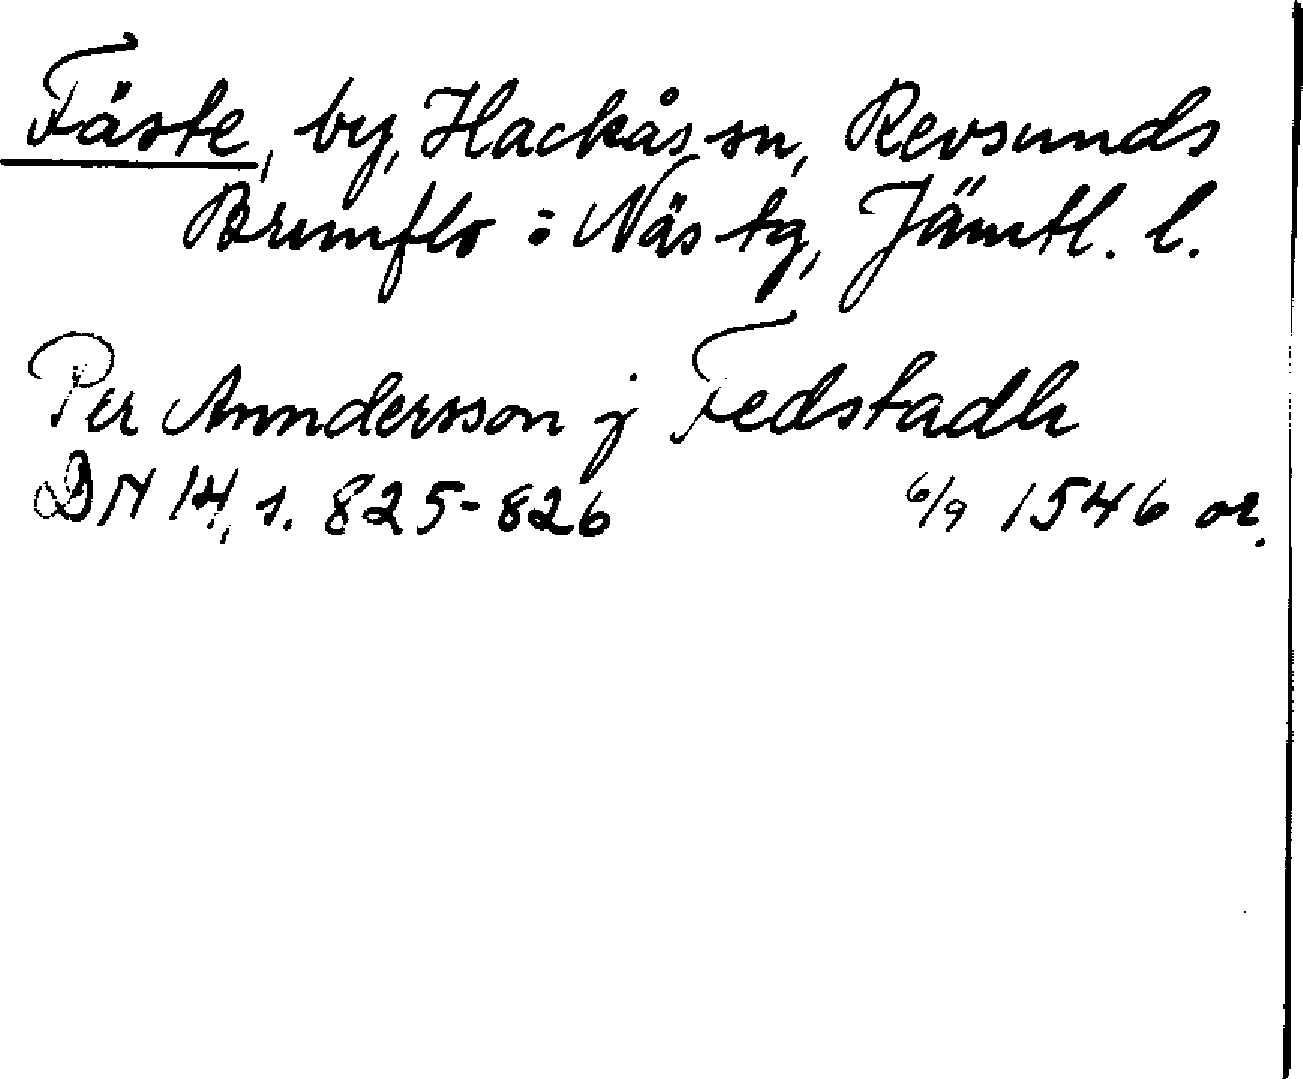 Fäste, by, Hackås sn, Revsunds
Brunflo o Näs tg, Jämtl. l.
Per Anndersson j Fedstadh
DN 14, s. 825-826 6/9 1546 or.